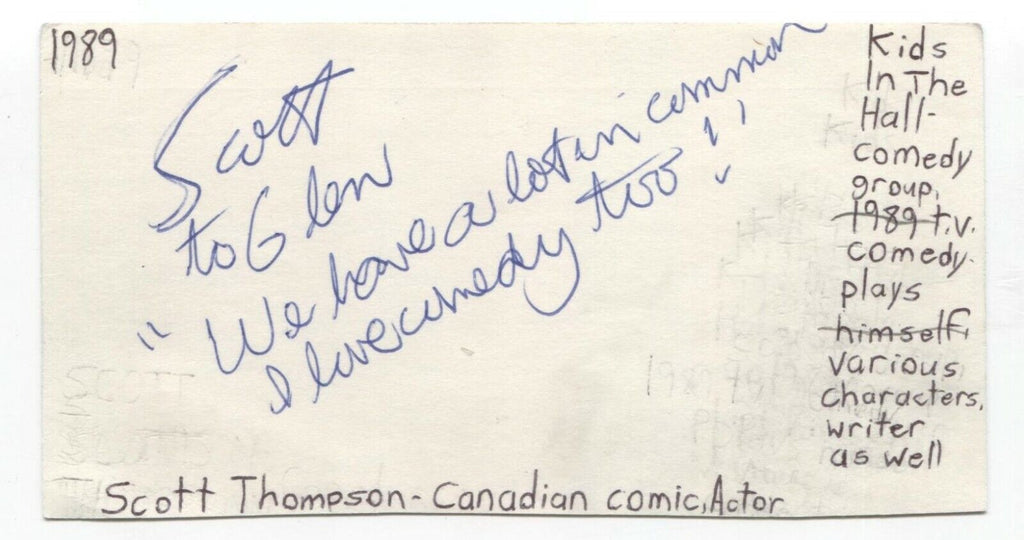 1989
Scott
to Glen
"We have a lot in common
I love comedy too!"
Kids
In The
Hall-
comedy
group,
1989 t.v.
comedy.
plays
himself,
various
characters,
writer
as well
Scott Thompson - Canadian comic, Actor